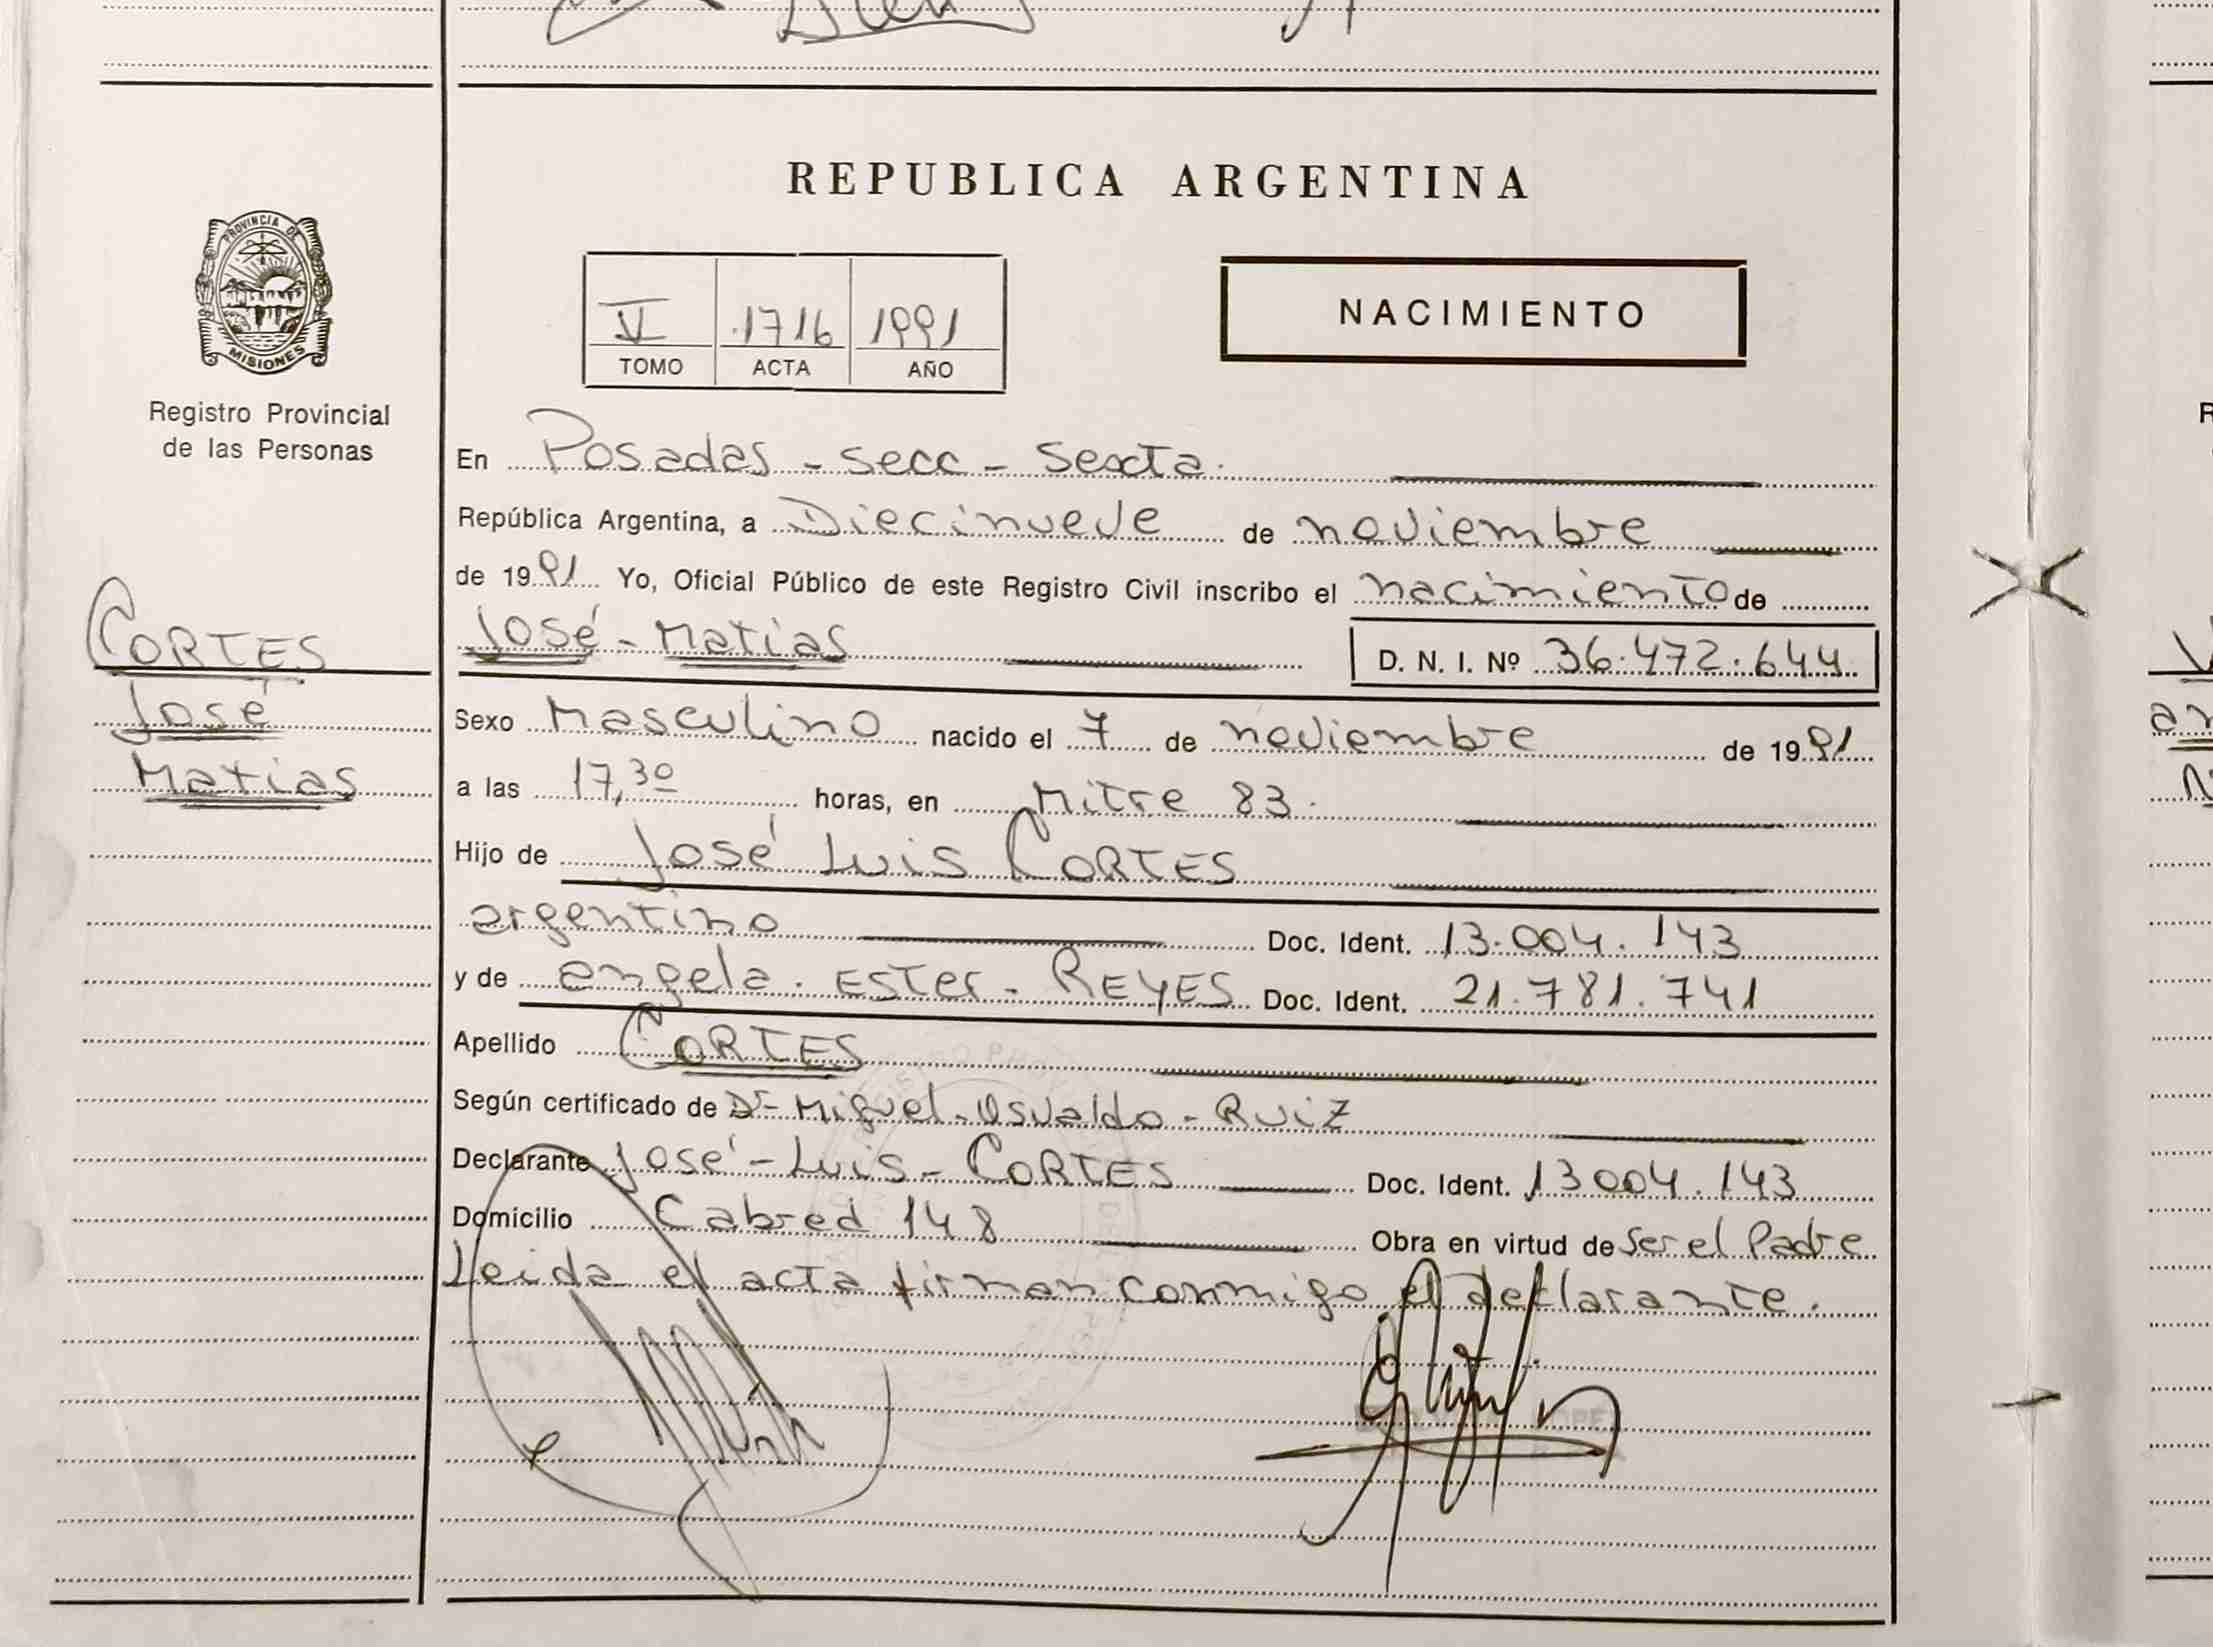 REPUBLICA ARGENTINA
PROVINCIA DE
MISIONES
Registro Provincial
de las Personas
V 1716 1991
TOMO ACTA AÑO
NACIMIENTO
En Posadas - secc - Sexta.
República Argentina, a Diecinueve de noviembre
de 1991 Yo, Oficial Público de este Registro Civil inscribo el nacimiento de
CORTES
José - Matias D. N. I. Nº 36.472.644
José
Sexo Masculino nacido el 7 de noviembre de 1991
Matias
a las 17,30 horas, en Mitre 83.
Hijo de José Luis CORTES
argentino Doc. Ident. 13.004.143
y de angela. Ester - REYES Doc. Ident. 21.781.741
Apellido CORTES
Según certificado de Dr Miguel - Osvaldo - Ruiz
Declarante José - Luis - CORTES Doc. Ident. 13004.143
Domicilio Cabred 148 Obra en virtud de ser el Padre
Leida el acta firman conmigo el declarante.